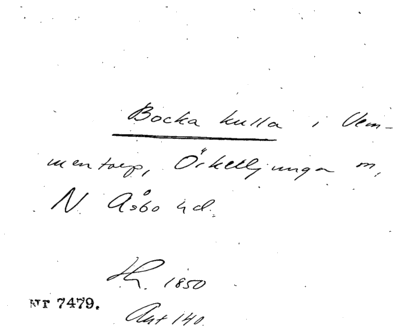 Bocka kulla i Vem-
mentorp, Örkelljunga m,
N. Åsbo hd.
Hz. 1850
Nr 7479.
Ant 140.